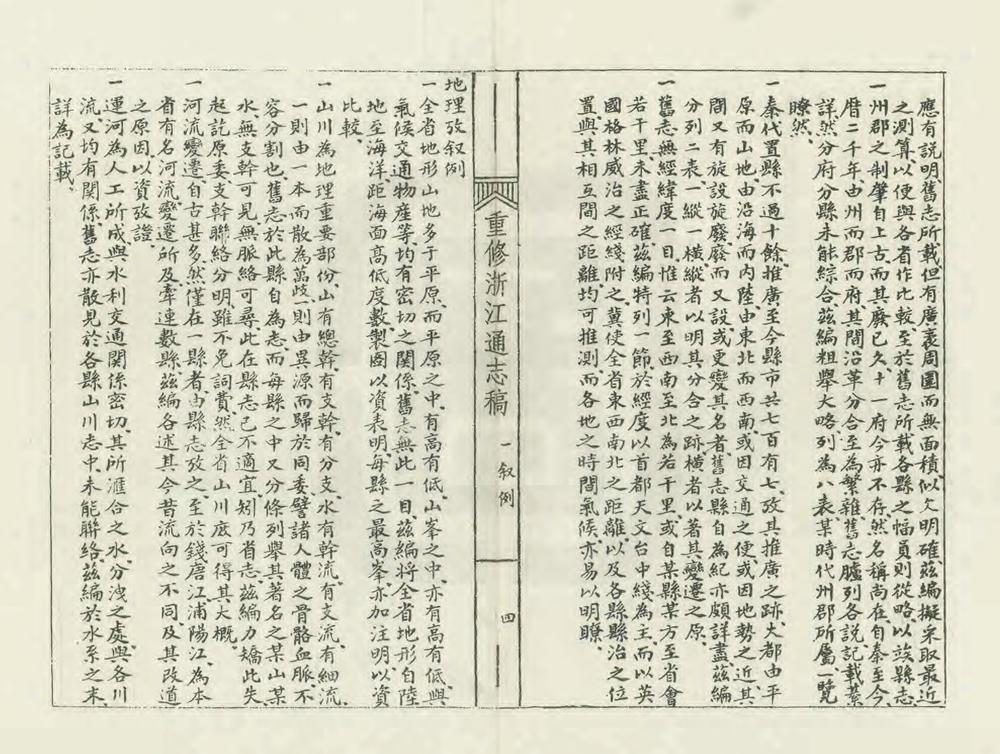 應有說明舊志所載但有廣袤周圍而無面積似欠明確茲編擬采取最近
之測算以便與各省作比較至於舊志所載各縣之幅員則從略以竢縣志
一州郡之制肇自上古而其廢已久十一府今亦不存然名稱尚在自秦至今
曆二千年由州而郡而府其間沿革分合至為繁雜舊志臚列各說記載綦
詳然分府分縣未能綜合茲編粗舉大略列為八表某時代州郡所屬一覽
瞭然
一秦代置縣不過十餘推廣至今縣市共七百有七攷其推廣之跡大都由平
原而山地由沿海而內陸由東北而西南或因交通之便或因地勢之近其
間又有旋設旋廢廢而又設或更變其名者舊志縣自為紀亦頗詳盡茲編
分列二表一縱一橫縱者以明其分合之跡橫者以著其變遷之原
一舊志無經緯度一目惟云東至西南至北為若干里或自某縣某方至省會
若干里未盡正確茲編特列一節於經度以首都天文台中綫為主而以英
國格林威治之經綫附之冀使全省東西南北之距離以及各縣縣治之位
置與其相互間之距離均可推測而各地之時間氣候亦易以明瞭
重修浙江通志稿
一叙例
四
地理攷叙例
一全省地形山地多于平原而平原之中有高有低山峯之中亦有高有低與
氣候交通物產等均有密切之關係舊志無此一目茲編將全省地形自陸
地至海洋距海面高低度數製图以資表明每縣之最高峯亦加注明以資
比較
一山川為地理重要部份山有總幹有支幹有分支水有幹流有支流有細流
一則由一本而散為萬歧一則由異源而歸於同委譬諸人體之骨骼血脈不
容分割也舊志於此縣自為志而每縣之中又分條列舉其著名之某山某
水無支幹可見無脈絡可尋此在縣志已不適宜矧乃省志茲編力矯此失
起訖原委支幹聯絡分明雖不免詞費然全省山川庶可得其大概
一河流變遷自古甚多然僅在一縣者由縣志攷之至於錢唐江浦陽江為本
省有名河流變遷所及牽連數縣茲編各述其今昔流向之不同及其改道
之原因以資攷證
一運河為人工所成與水利交通関係密切其所滙合之水分洩之處與各川
流又均有関係舊志亦散見於各縣山川志中未能聯絡茲編於水系之末
詳為記載